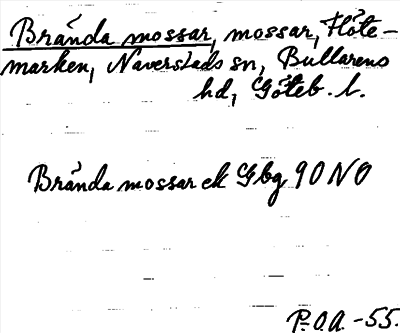 Brända mossar, mossar, Flöte-
marken, Naverstads sn, Bullarens
hd, Göteb. l.
Brända mossar ek Gbg 90 NO
P.O.A. -55.